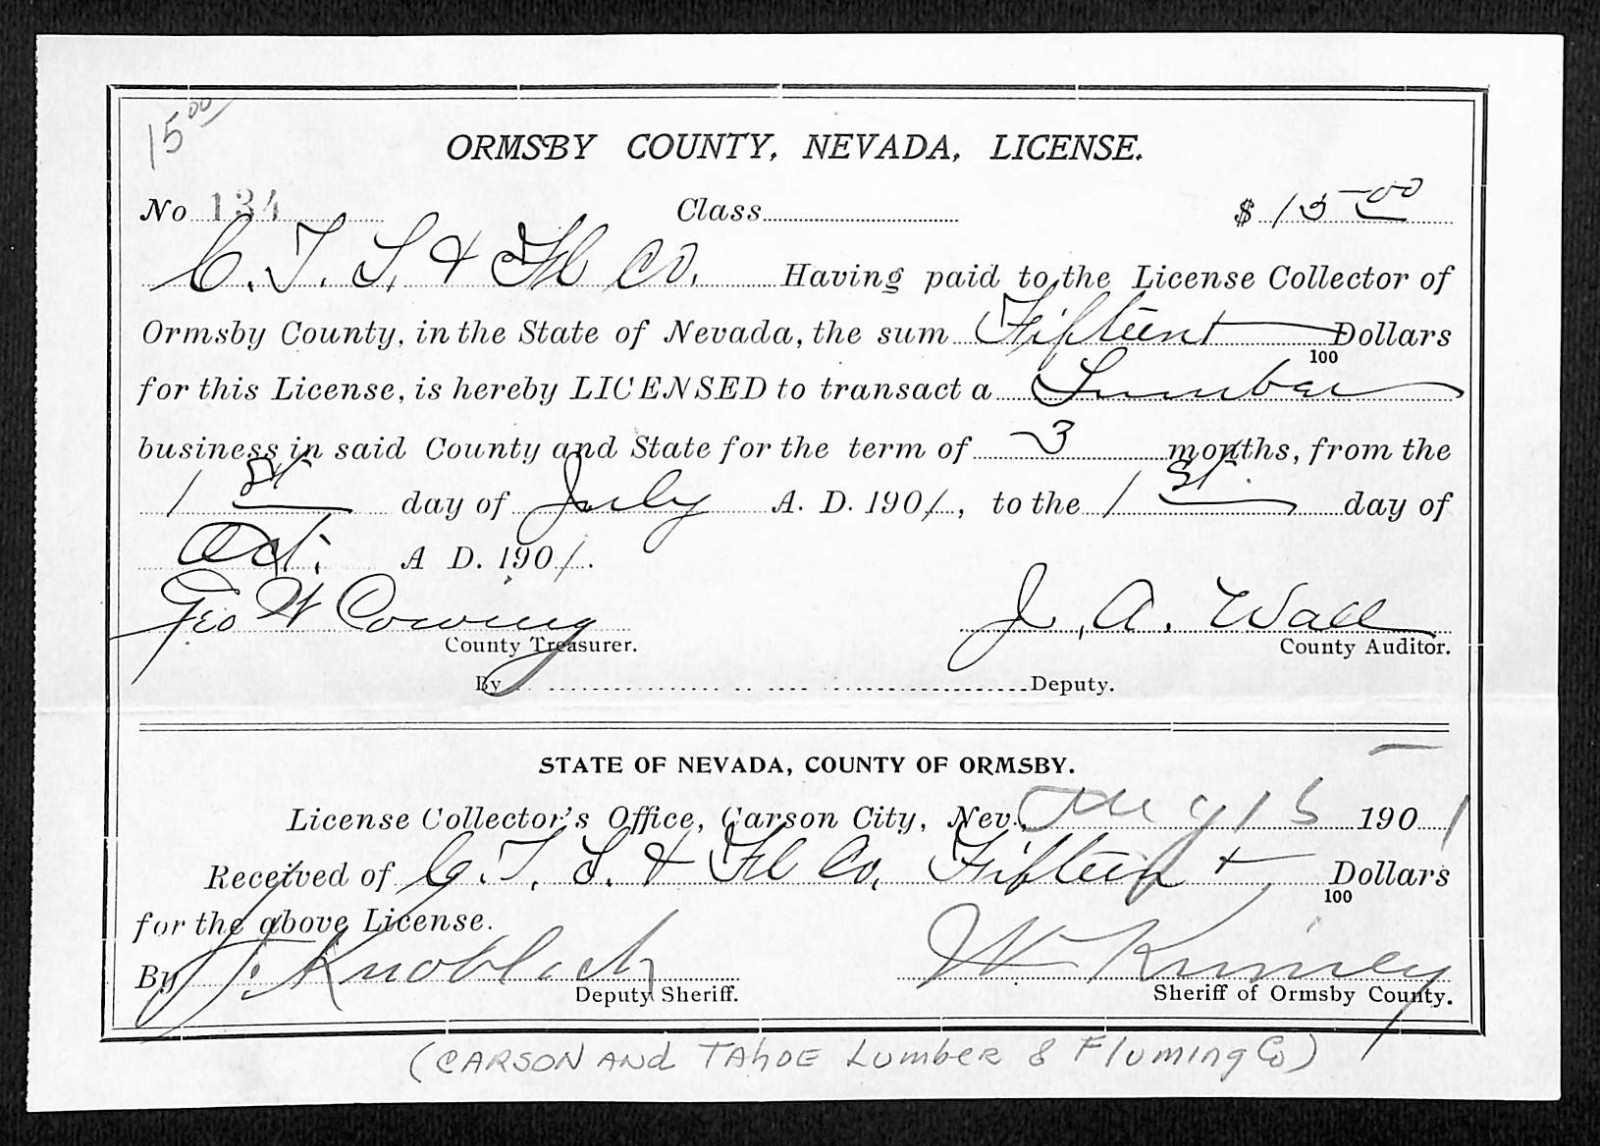 15 00
ORMSBY COUNTY, NEVADA, LICENSE.
No 134 Class $ 15 00
C. T. L. & Fl Co. Having paid to the License Collector of
Ormsby County, in the State of Nevada, the sum Fifteen Dollars
100
for this License, is hereby LICENSED to transact a Lumber
business in said County and State for the term of 3 months, from the
1 st day of July A. D. 1901, to the 1 st. day of
Oct. A D. 1901.
Geo W Cowing J. A. Wall
County Treasurer. County Auditor.
By Deputy.
STATE OF NEVADA, COUNTY OF ORMSBY.
License Collector's Office, Carson City, Nev., Aug 15 1901
Received of C. T. L. & Fl Co. Fifteen Dollars
100
for the above License.
By J. Knoblach W Kinney
Deputy Sheriff. Sheriff of Ormsby County.
(CARSON AND TAHOE LUMBER & FLUMING Co)